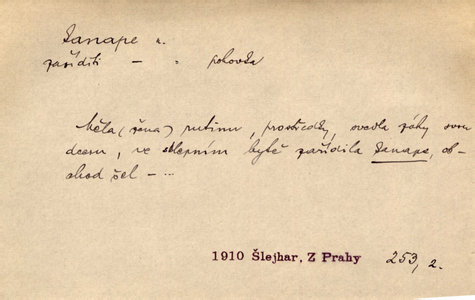 kanape n.
zaříditi — " pohovka
Měla (žena) rutinu, prostředky, svedla záhy svou
dceru, ve sklepním bytě zařídila kanape, ob-
chod šel — ...
1910 Šlejhar, Z Prahy 253, 2.